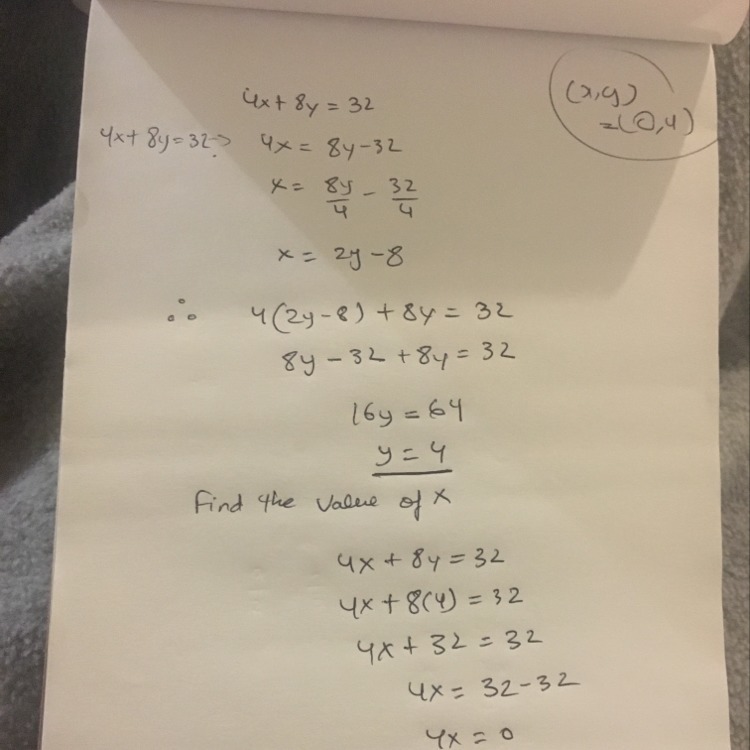 4x + 8y = 32
(x,y)
= (0,4)
4x + 8y = 32 → 4x = 8y - 32
x = 8y/4 - 32/4
x = 2y - 8
∴ 4(2y - 8) + 8y = 32
8y - 32 + 8y = 32
16y = 64
y = 4
Find the value of x
4x + 8y = 32
4x + 8(4) = 32
4x + 32 = 32
4x = 32 - 32
4x = 0